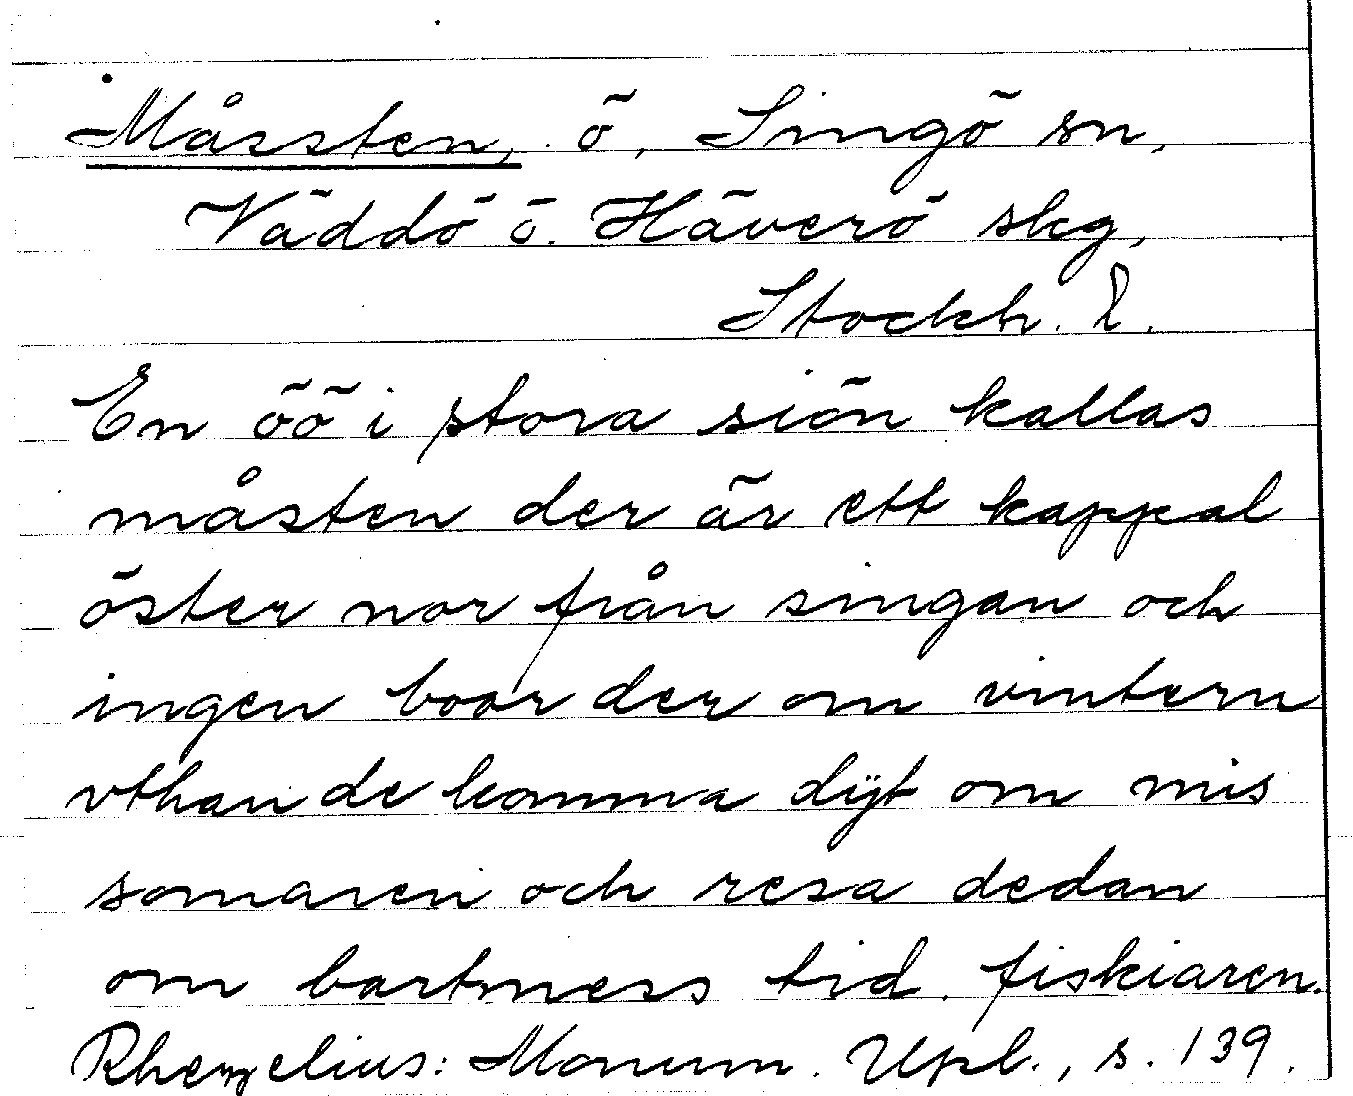 Måssten, ö, Singö sn,
Väddö o. Häverö skg,
Stockh. l.
En öö i stora siön kallas
måsten der är ett kappal
öster nor från singan och
ingen boor der om vintern
vthan de komma dijt om mis
somaren och resa dedan
om bartmess tid. fiskiaren.
Rhezelius: Monum. Upl., s. 139.